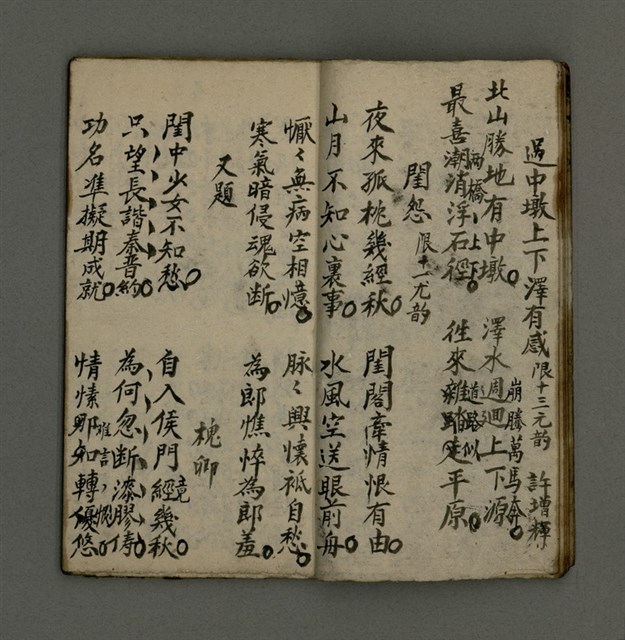 過中墩上下澤有感 限十三元韵 許增輝
北山勝地有中墩 澤水週迴上下源
崩騰萬馬奔
兩橋上下
最喜潮消浮石徑 往來雜踏走平原
道路似
閨怨 限十一尤韵
夜來孤枕幾經秋 閨閣牽情恨有由
山月不知心裏事 水風空送眼前舟
懨々無病空相憶 脉々興懷祇自愁
寒氣暗侵魂欲断 為郎憔悴為郎羞
又題 槐卿
閨中少女不知愁 自入侯門經幾秋
竟
只望長諧秦晋約 為何忽断漆膠儔
功名准擬期成就 情愫那知轉優悠